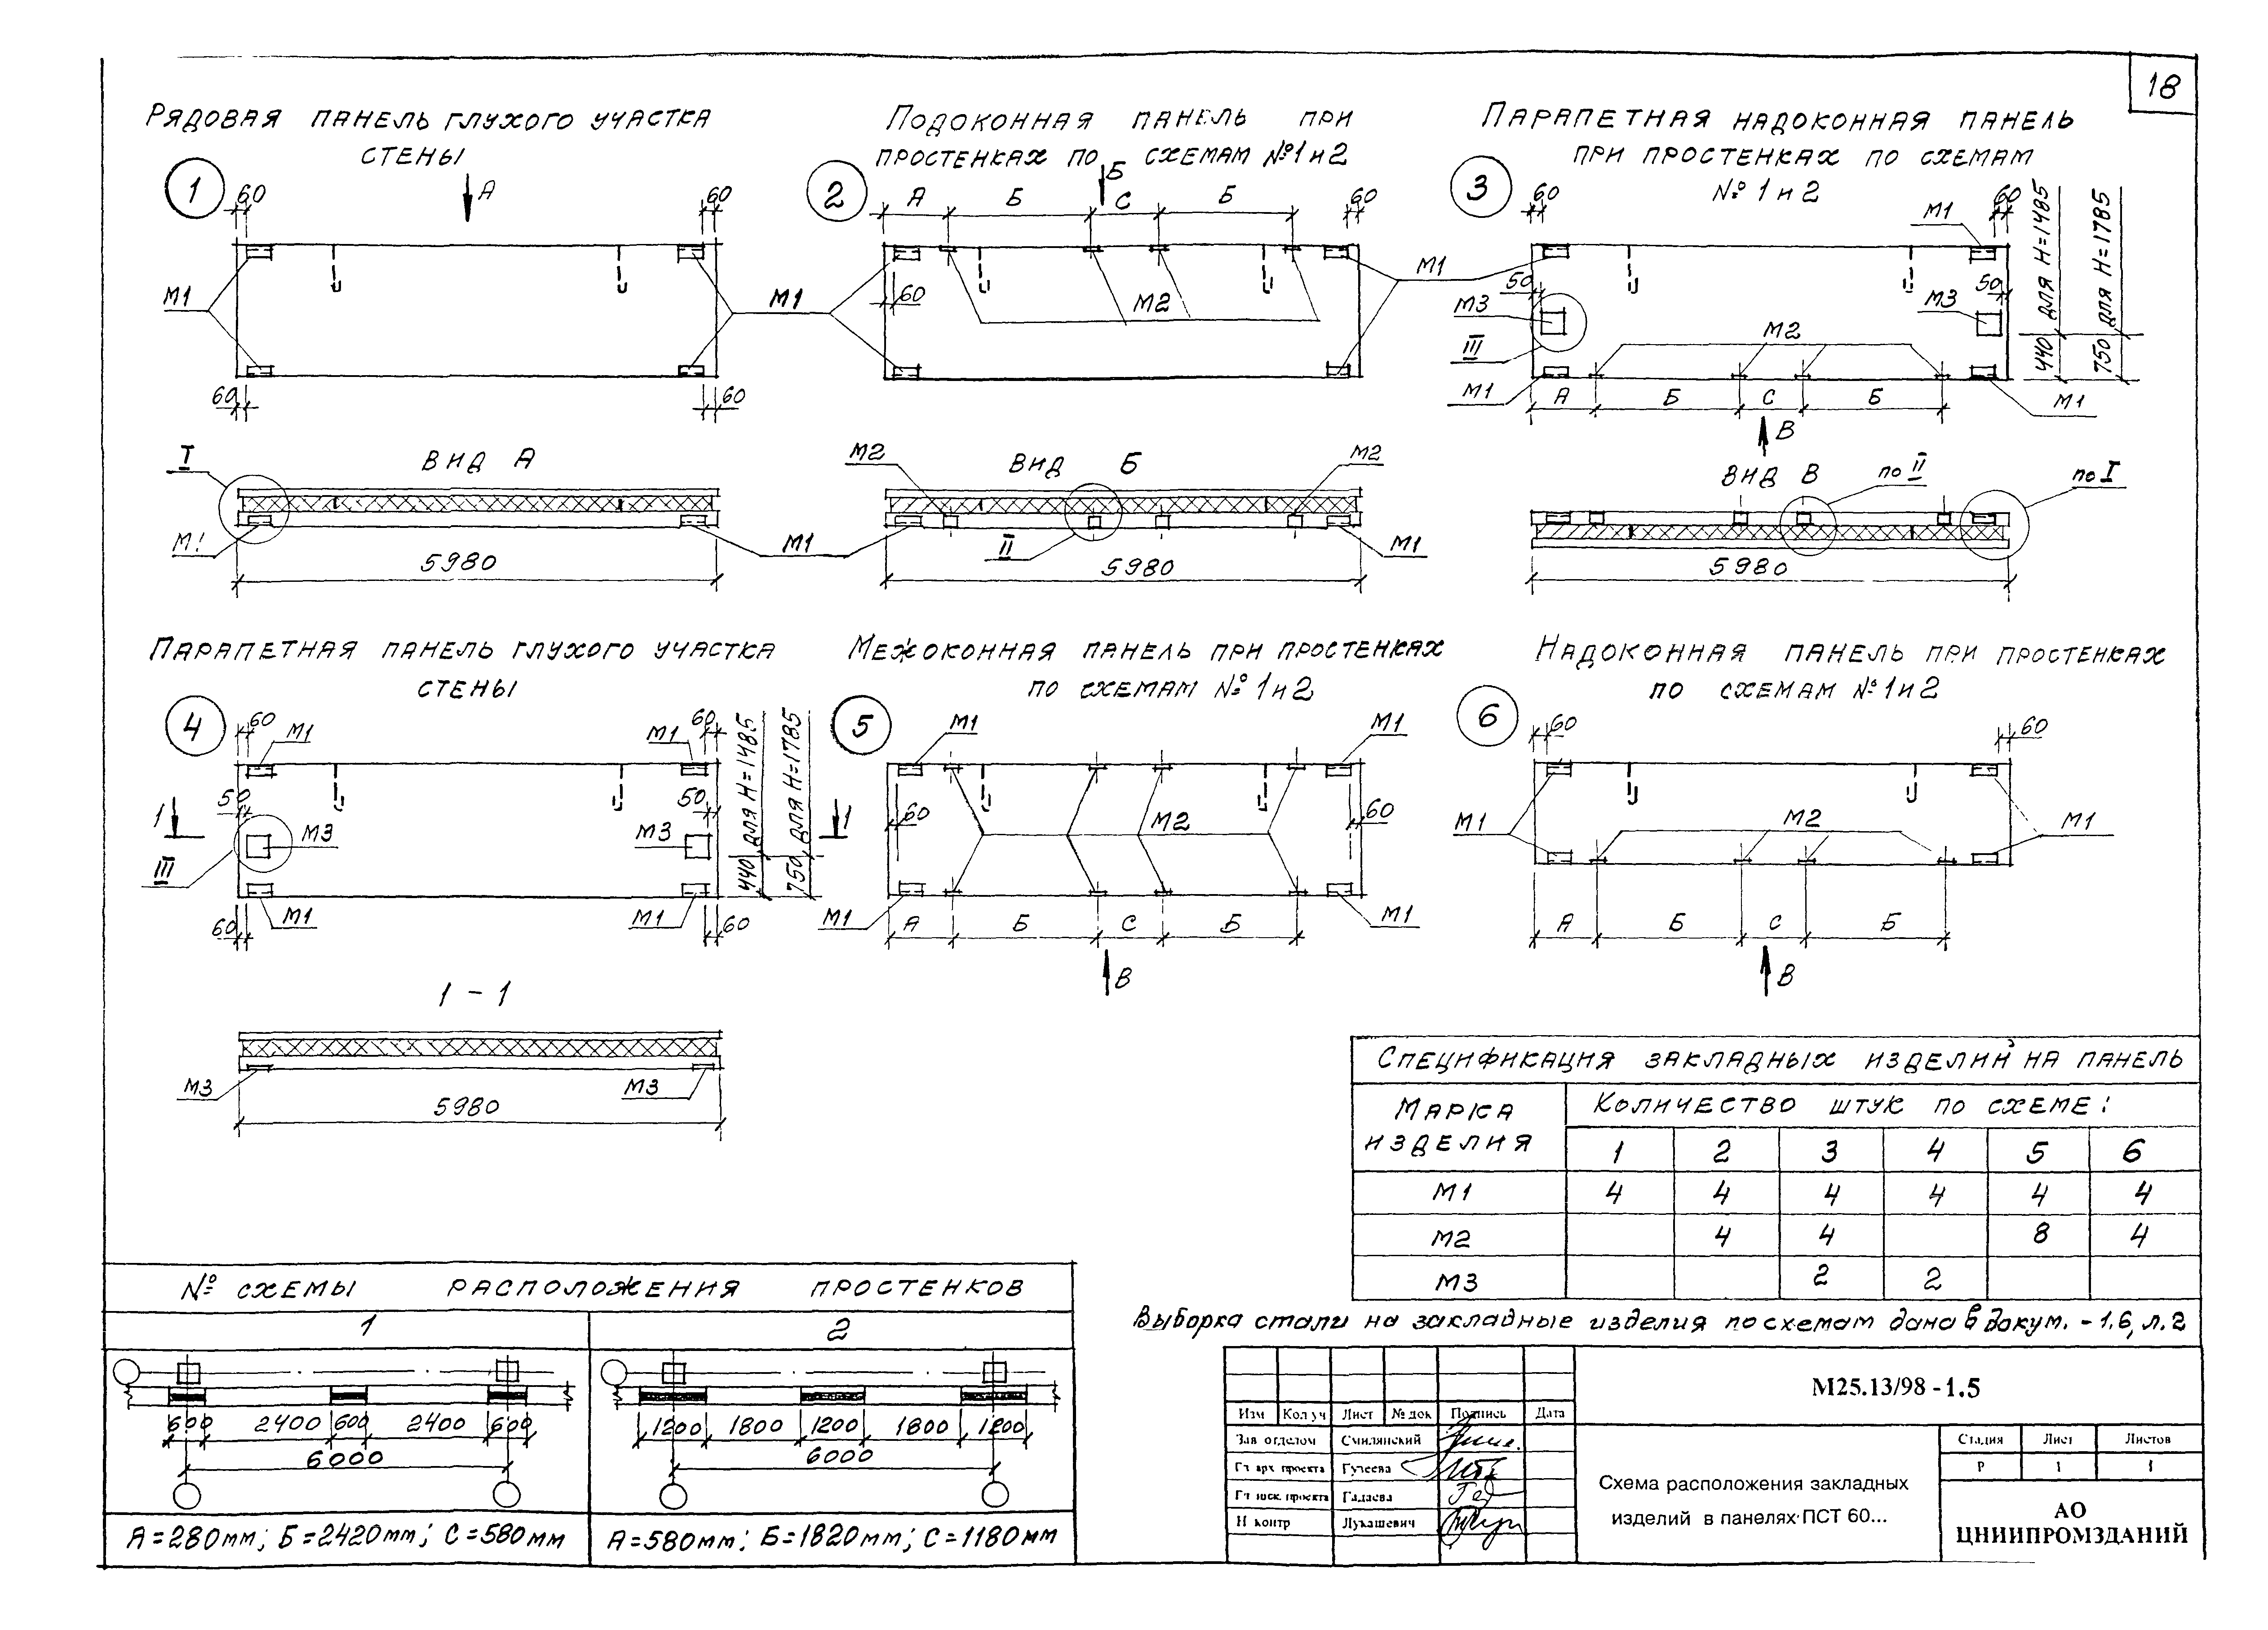 18
Рядовая панель глухого участка
стены
1
60
А
60
М1
60
60
Подоконная панель при
простенках по схемам №1 и 2
2
Б
А
Б
С
Б
60
М1
60
М2
М1
Парапетная надоконная панель
при простенках по схемам
№ 1 и 2
3
60
М1
60
440 для Н=1485
750 для Н=1785
50
50
М3
М3
III
М2
М1
М1
А
Б
С
Б
В
I
Вид А
М1
М1
5980
М2
Вид Б
М2
II
М1
5980
Вид В
по II
по I
5980
Парапетная панель глухого участка
стены
4
60
М1
М1
60
50
50
1
1
М3
М3
III
440 для Н=1485
750 для Н=1785
М1
М1
60
60
Межоконная панель при простенках
по схемам № 1 и 2
5
М1
М1
60
М2
60
М1
М1
А
Б
С
Б
В
Надоконная панель при простенках
по схемам № 1 и 2
6
60
60
М1
М2
М1
А
Б
С
Б
В
1 - 1
М3
М3
5980
Спецификация закладных изделий на панель
Марка изделия
Количество штук по схеме:
1 2 3 4 5 6
М1 4 4 4 4 4 4
М2 4 4 8 4
М3 2 2
Выборка стали на закладные изделия по схемам дана в докум. -1.6, л.2
№ схемы расположения простенков
1
2
600 2400 600 2400 600
6000
1200 1800 1200 1800 1200
6000
А=280мм; Б=2420мм; С=580мм
А=580мм; Б=1820мм; С=1180мм
Изм Кол уч Лист № док Подпись Дата
Зав отделом Смилянский
Гл арх проекта Гулеева
Гл инж. проекта Гадаева
Н контр Лукашевич
М25.13/98 -1.5
Схема расположения закладных
изделий в панелях ПСТ 60...
Стадия Лист Листов
Р 1 1
АО
ЦНИИПРОМЗДАНИЙ